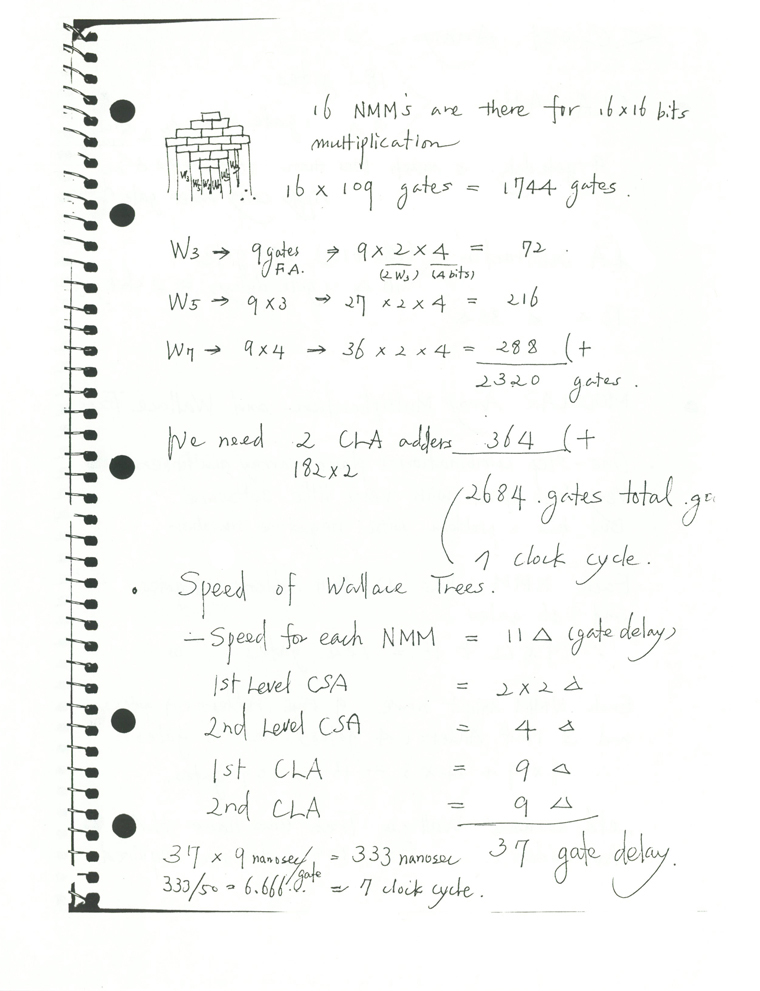 16 NMM's are there for 16x16 bits
multiplication
16 x 109 gates = 1744 gates.
W3 → 9 gates ⇒ 9 x 2 x 4 = 72.
F.A. (2 W3) (4 bits)
W5 → 9 x 3 → 27 x 2 x 4 = 216
W7 → 9 x 4 → 36 x 2 x 4 = 288 (+
2320 gates.
We need 2 CLA adders 364 (+
182 x 2
2684 . gates total .
7 clock cycle.
• Speed of Wallace Trees.
- Speed for each NMM = 11 Δ (gate delay)
1st Level CSA = 2 x 2 Δ
2nd Level CSA = 4 Δ
1st CLA = 9 Δ
2nd CLA = 9 Δ
37 gate delay.
37 x 9 nanosec/gate = 333 nanosec
333/50 = 6.666 = 7 clock cycle.